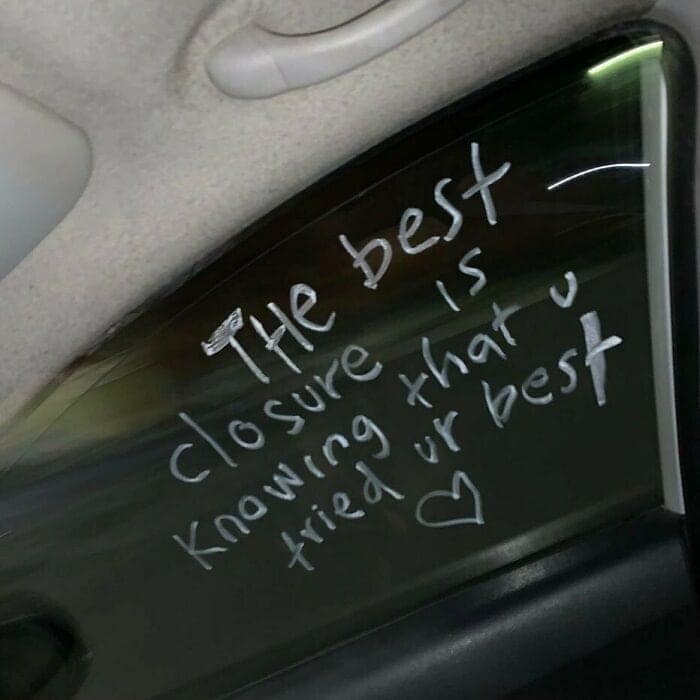 THe best
closure is
knowing that u
tried ur best
♡